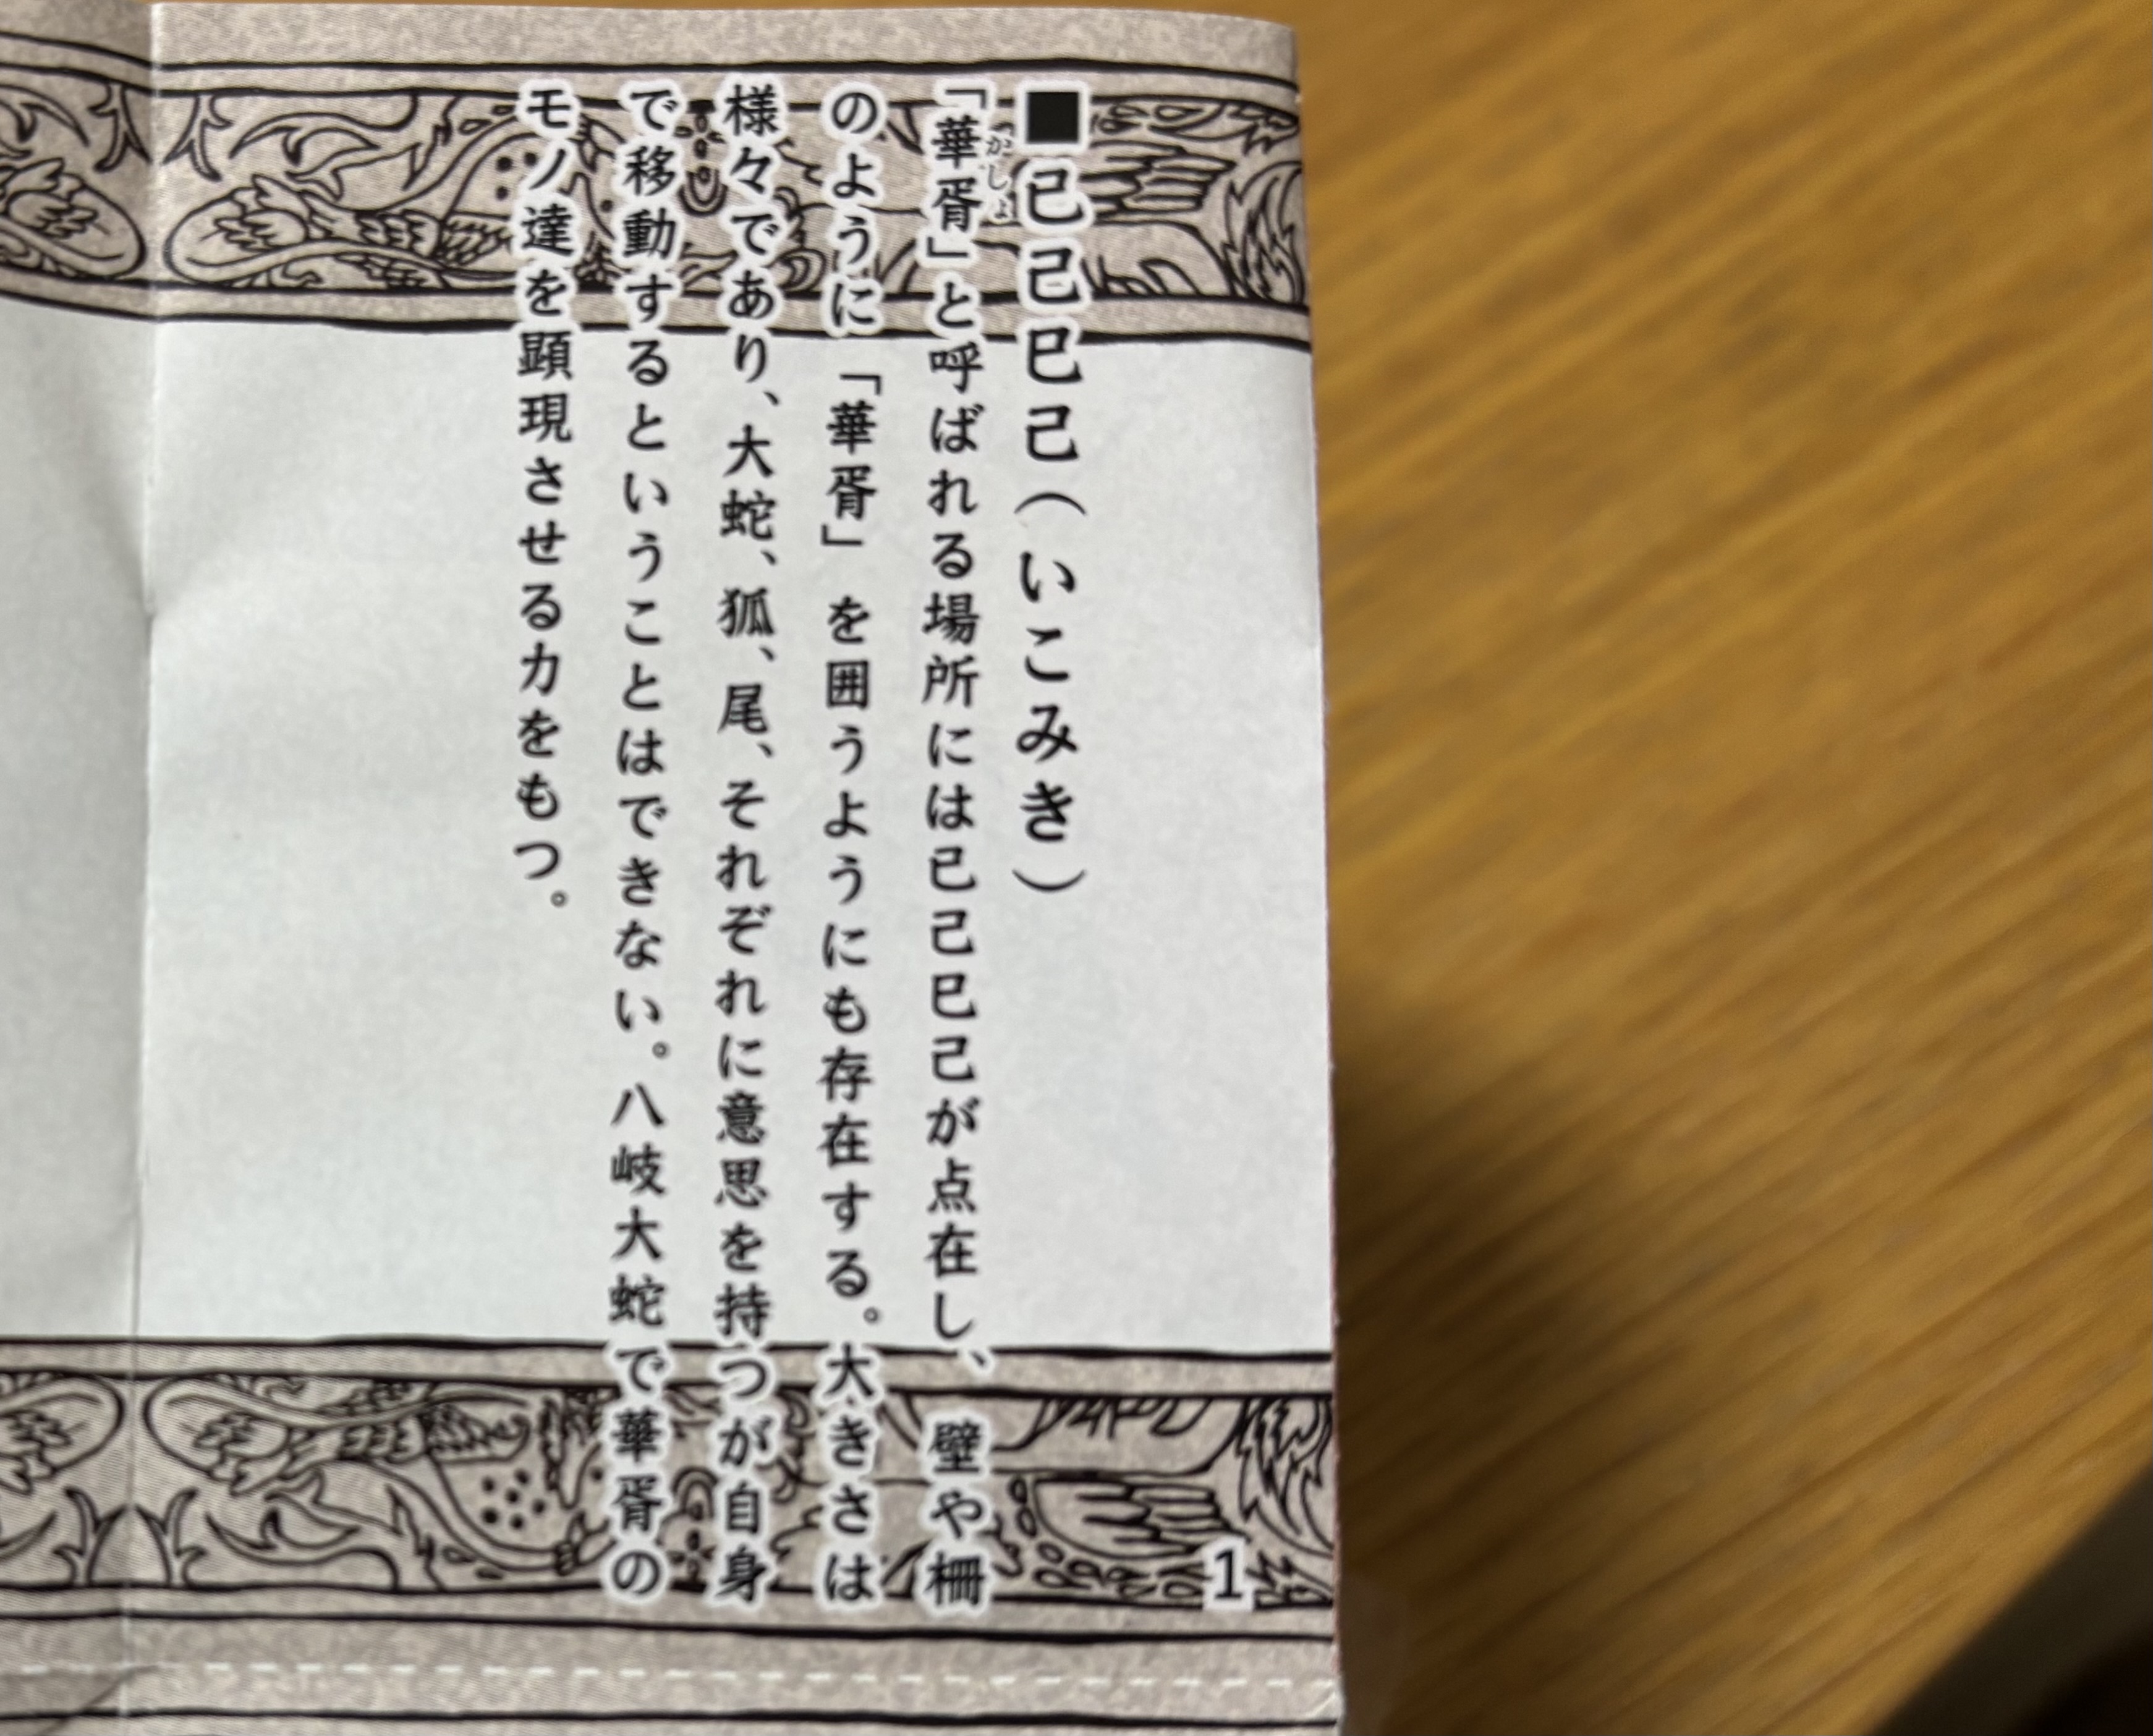 ■已己巳己(いこみき)
「華胥」と呼ばれる場所には已己巳己が点在し、壁や柵
かしょ
のように「華胥」を囲うようにも存在する。大きさは
様々であり、大蛇、狐、尾、それぞれに意思を持つが自身
で移動するということはできない。八岐大蛇で華胥の
モノ達を顕現させる力をもつ。
1